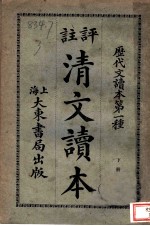 歷代文讀本第一種
評註
清文讀本
下冊
上海大東書局出版